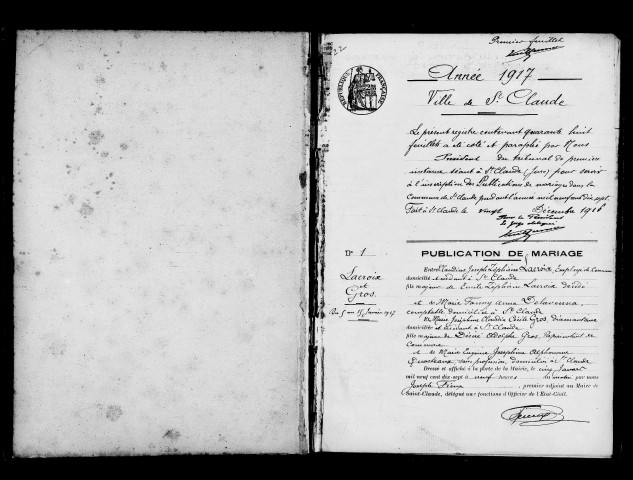 22
Premier feuillet
RÉPUBLIQUE FRANÇAISE
Année 1917
Ville de St Claude
Le présent registre contenant quarante huit
feuillets a été coté et paraphé par Nous
Président du tribunal de première
instance séant à St Claude (Jura) pour servir
à l'inscription des Publications de mariages dans la
Commune de St Claude pendant l'année mil neuf cent dix sept.
Fait à St Claude le vingt Décembre 1916
Pour le Président
le juge délégué
N° 1
Lacroix
et
Gros.
Du 5 au 15 Janvier 1917
PUBLICATION DE MARIAGE
Entre Claudius Joseph Zéphirin Lacroix Employé de Commerce
domicilié et résidant à St Claude
fils majeur de Emile Zéphirin Lacroix décédé
et de Marie Fanny Anna
comptable domiciliée à St Claude
Et Marie Joséphine Claudia Cécile Gros, diamantaire
domiciliée et résidant à St Claude
fille majeure de Désiré Adolphe Gros, Représentant de
Commerce
et de Marie Eugénie Joséphine Alphonsine
sans profession, domiciliés à St Claude
Dressé et affiché à la porte de la Mairie, le cinq Janvier
mil neuf cent dix-sept à neuf heures du matin par nous
Joseph , premier adjoint au Maire de
Saint-Claude, délégué aux fonctions d'Officier de l'Etat-Civil.